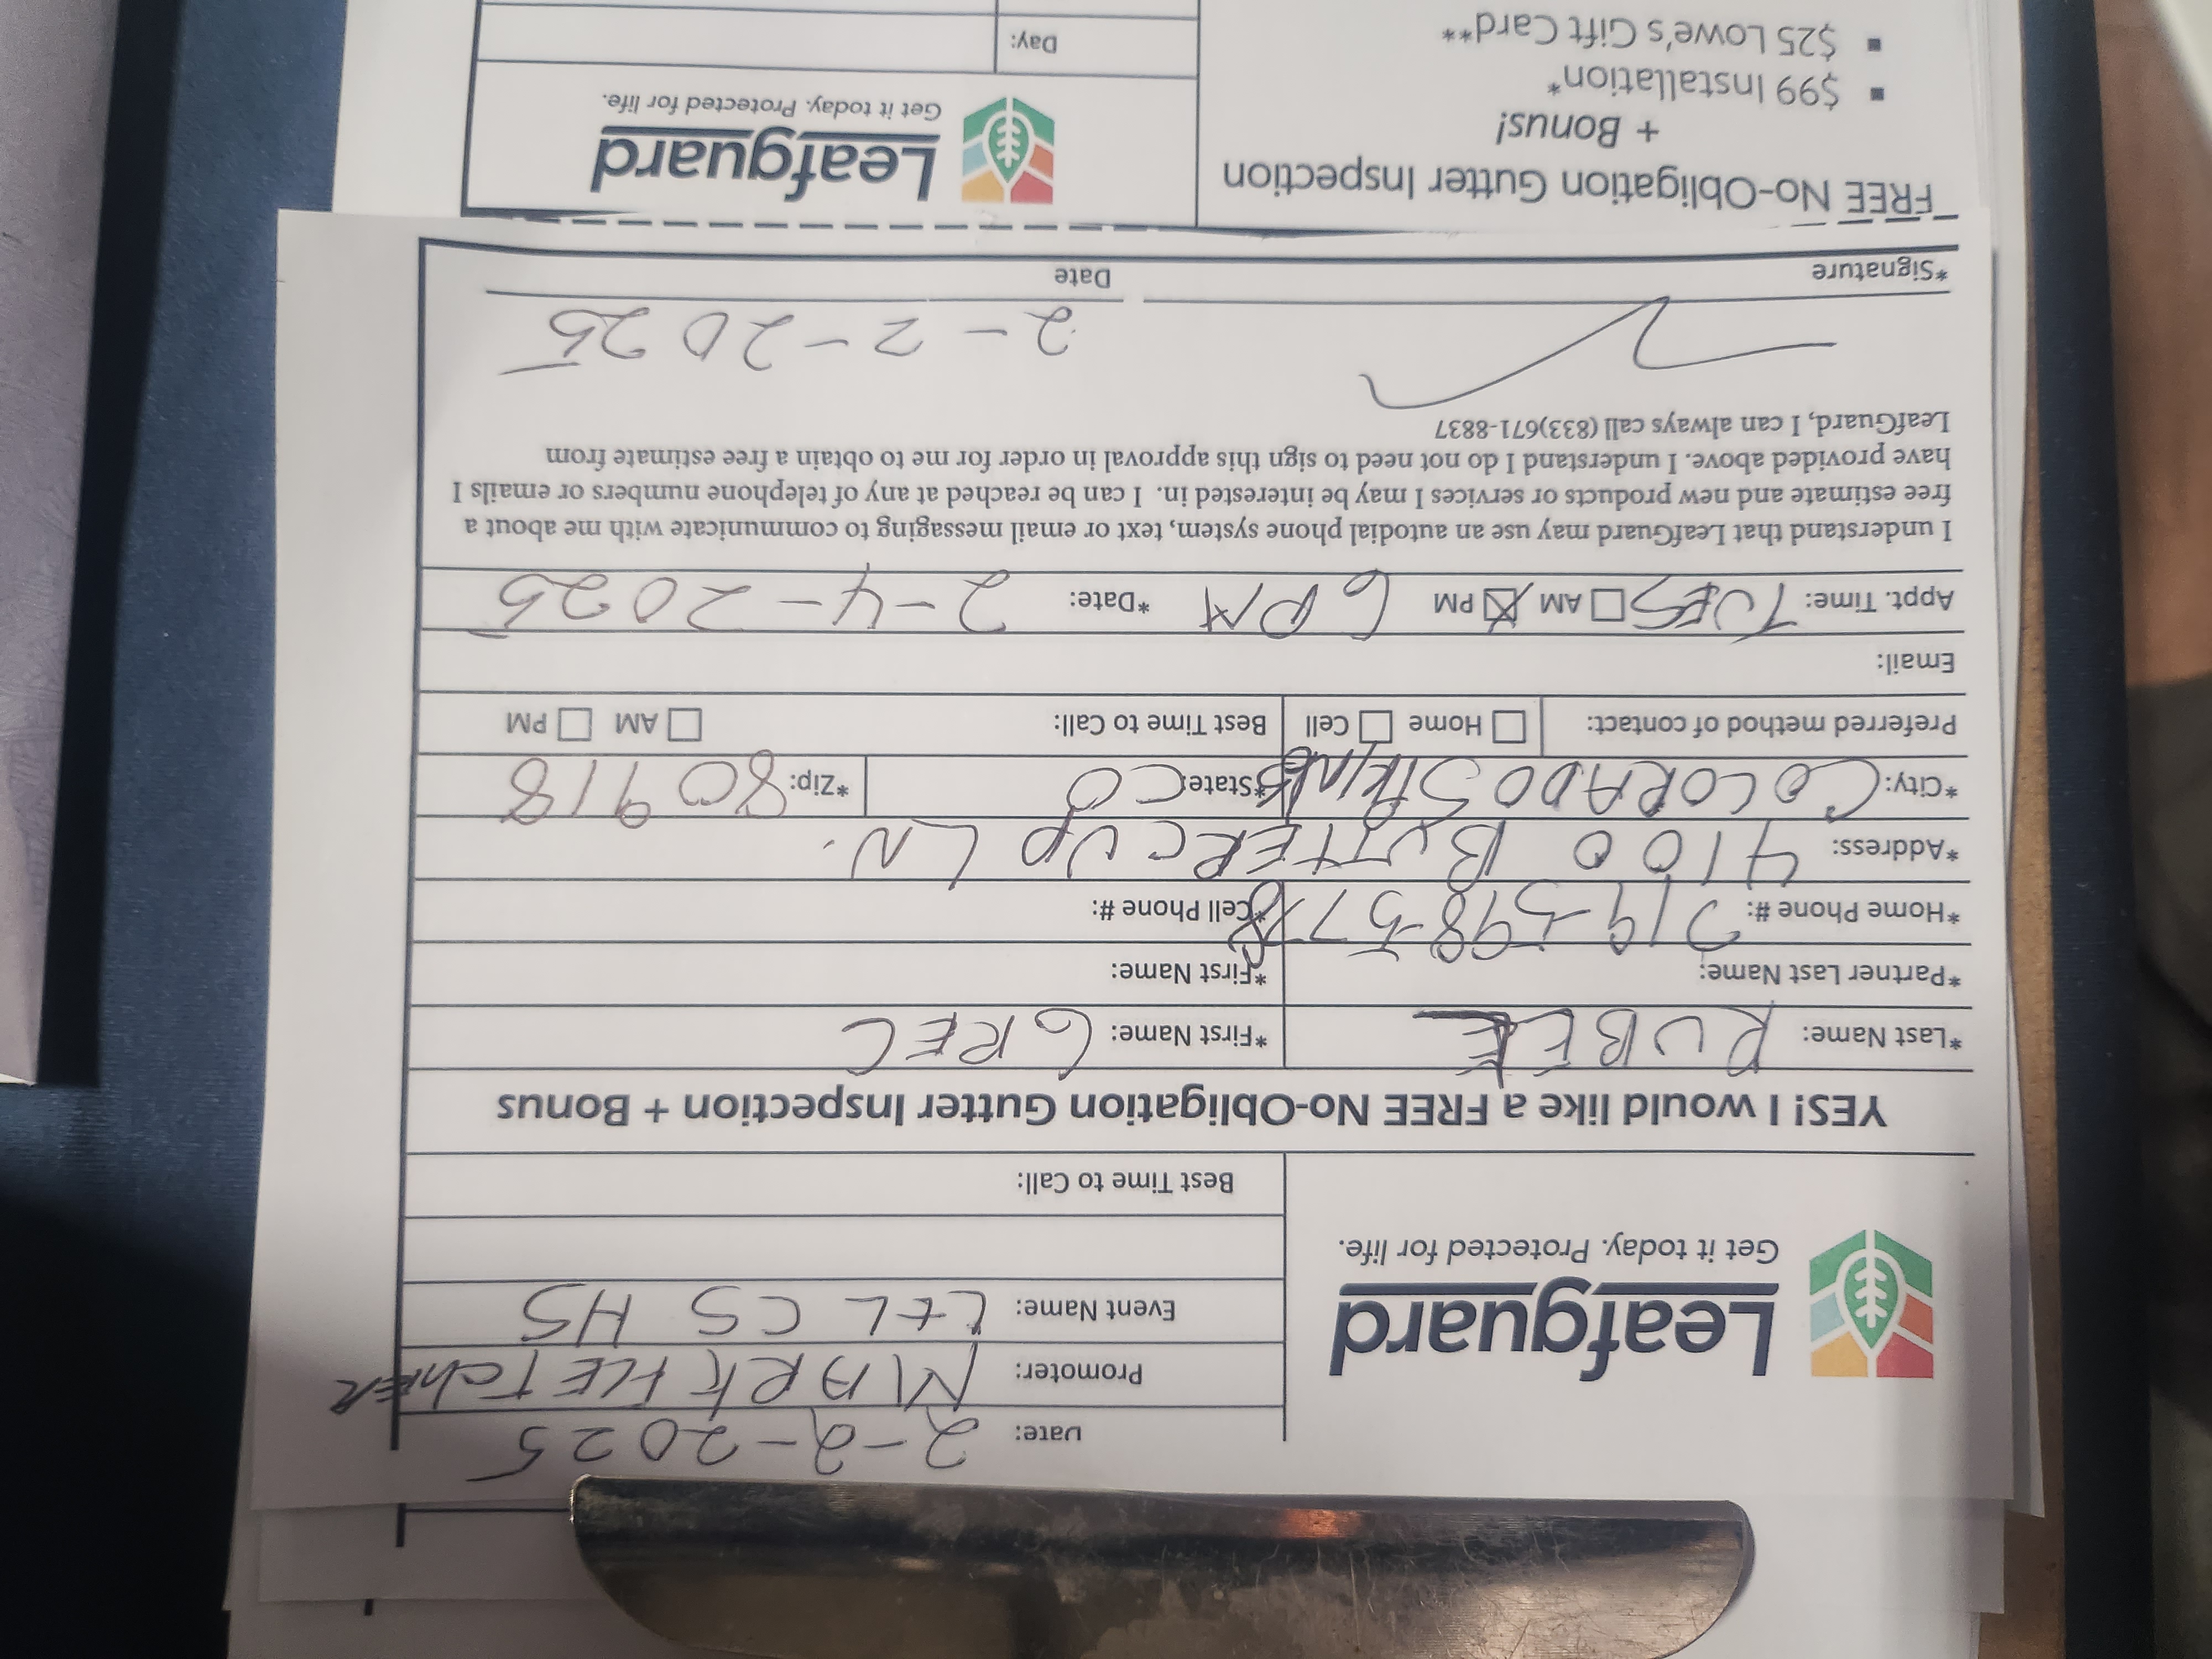 Leafguard
Get it today. Protected for life.
Date: 2-2-2025
Promoter: MARK FLETChER
Event Name: LtL CS HS
Best Time to Call:
YES! I would like a FREE No-Obligation Gutter Inspection + Bonus
*Last Name: RUBLE *First Name: GREG
*Partner Last Name: *First Name:
*Home Phone #: 719-598-5778 *Cell Phone #:
*Address: 4100 BUTTERCUP LN.
*City: COLORADO SPRINGS *State: CO *Zip: 80918
Preferred method of contact: Home Cell Best Time to Call: AM PM
Email:
Appt. Time: TUES AM PM 6 PM *Date: 2-4-2025
I understand that LeafGuard may use an autodial phone system, text or email messaging to communicate with me about a
free estimate and new products or services I may be interested in. I can be reached at any of telephone numbers or emails I
have provided above. I understand I do not need to sign this approval in order for me to obtain a free estimate from
LeafGuard, I can always call (833)671-8837
2-2-2025
*Signature Date
FREE No-Obligation Gutter Inspection
+ Bonus!
▪ $99 Installation*
▪ $25 Lowe's Gift Card**
Leafguard
Get it today. Protected for life.
Day: